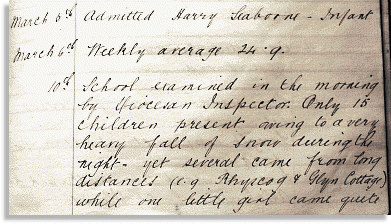 March 5th Admitted Harry Seaborne - Infant
March 6th Weekly average 24.9.
10th School examined in the morning
by Diocesan Inspector. Only 15
children present owing to a very
heavy fall of snow during the
night - yet several came from long
distances (e.g Rhyscog & Glyn Cottage)
while one little girl came quite